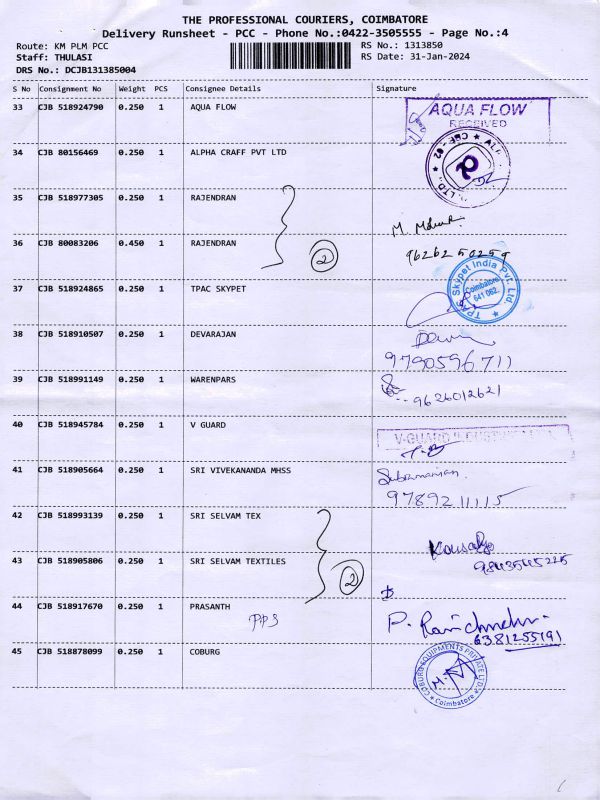 THE PROFESSIONAL COURIERS, COIMBATORE
Delivery Runsheet - PCC - Phone No.:0422-3505555 - Page No.:4
Route: KM PLM PCC
RS No.: 1313850
Staff: THULASI
RS Date: 31-Jan-2024
DRS No.: DCJB131385004
S No Consignment No Weight PCS Consignee Details Signature
33 CJB 518924790 0.250 1 AQUA FLOW
AQUA FLOW
RECEIVED
34 CJB 80156469 0.250 1 ALPHA CRAFF PVT LTD
LTD. ★ CBE - 02 ★
35 CJB 518977305 0.250 1 RAJENDRAN
M.
36 CJB 80083206 0.450 1 RAJENDRAN
2
9626250259
37 CJB 518924865 0.250 1 TPAC SKYPET
TPAC Skypet India Pvt. Ltd. ★
Coimbatore
641 062.
38 CJB 518910507 0.250 1 DEVARAJAN
9790596711
39 CJB 518991149 0.250 1 WARENPARS
9626012621
40 CJB 518945784 0.250 1 V GUARD
V-GUARD
41 CJB 518905664 0.250 1 SRI VIVEKANANDA MHSS
Subramanian
9789211115
42 CJB 518993139 0.250 1 SRI SELVAM TEX
Kousalya
43 CJB 518905806 0.250 1 SRI SELVAM TEXTILES
2
9843545225
44 CJB 518917670 0.250 1 PRASANTH
PPS
P.
6381255191
45 CJB 518878099 0.250 1 COBURG
COBURG EQUIPMENTS PRIVATE LTD.
★ Coimbatore ★